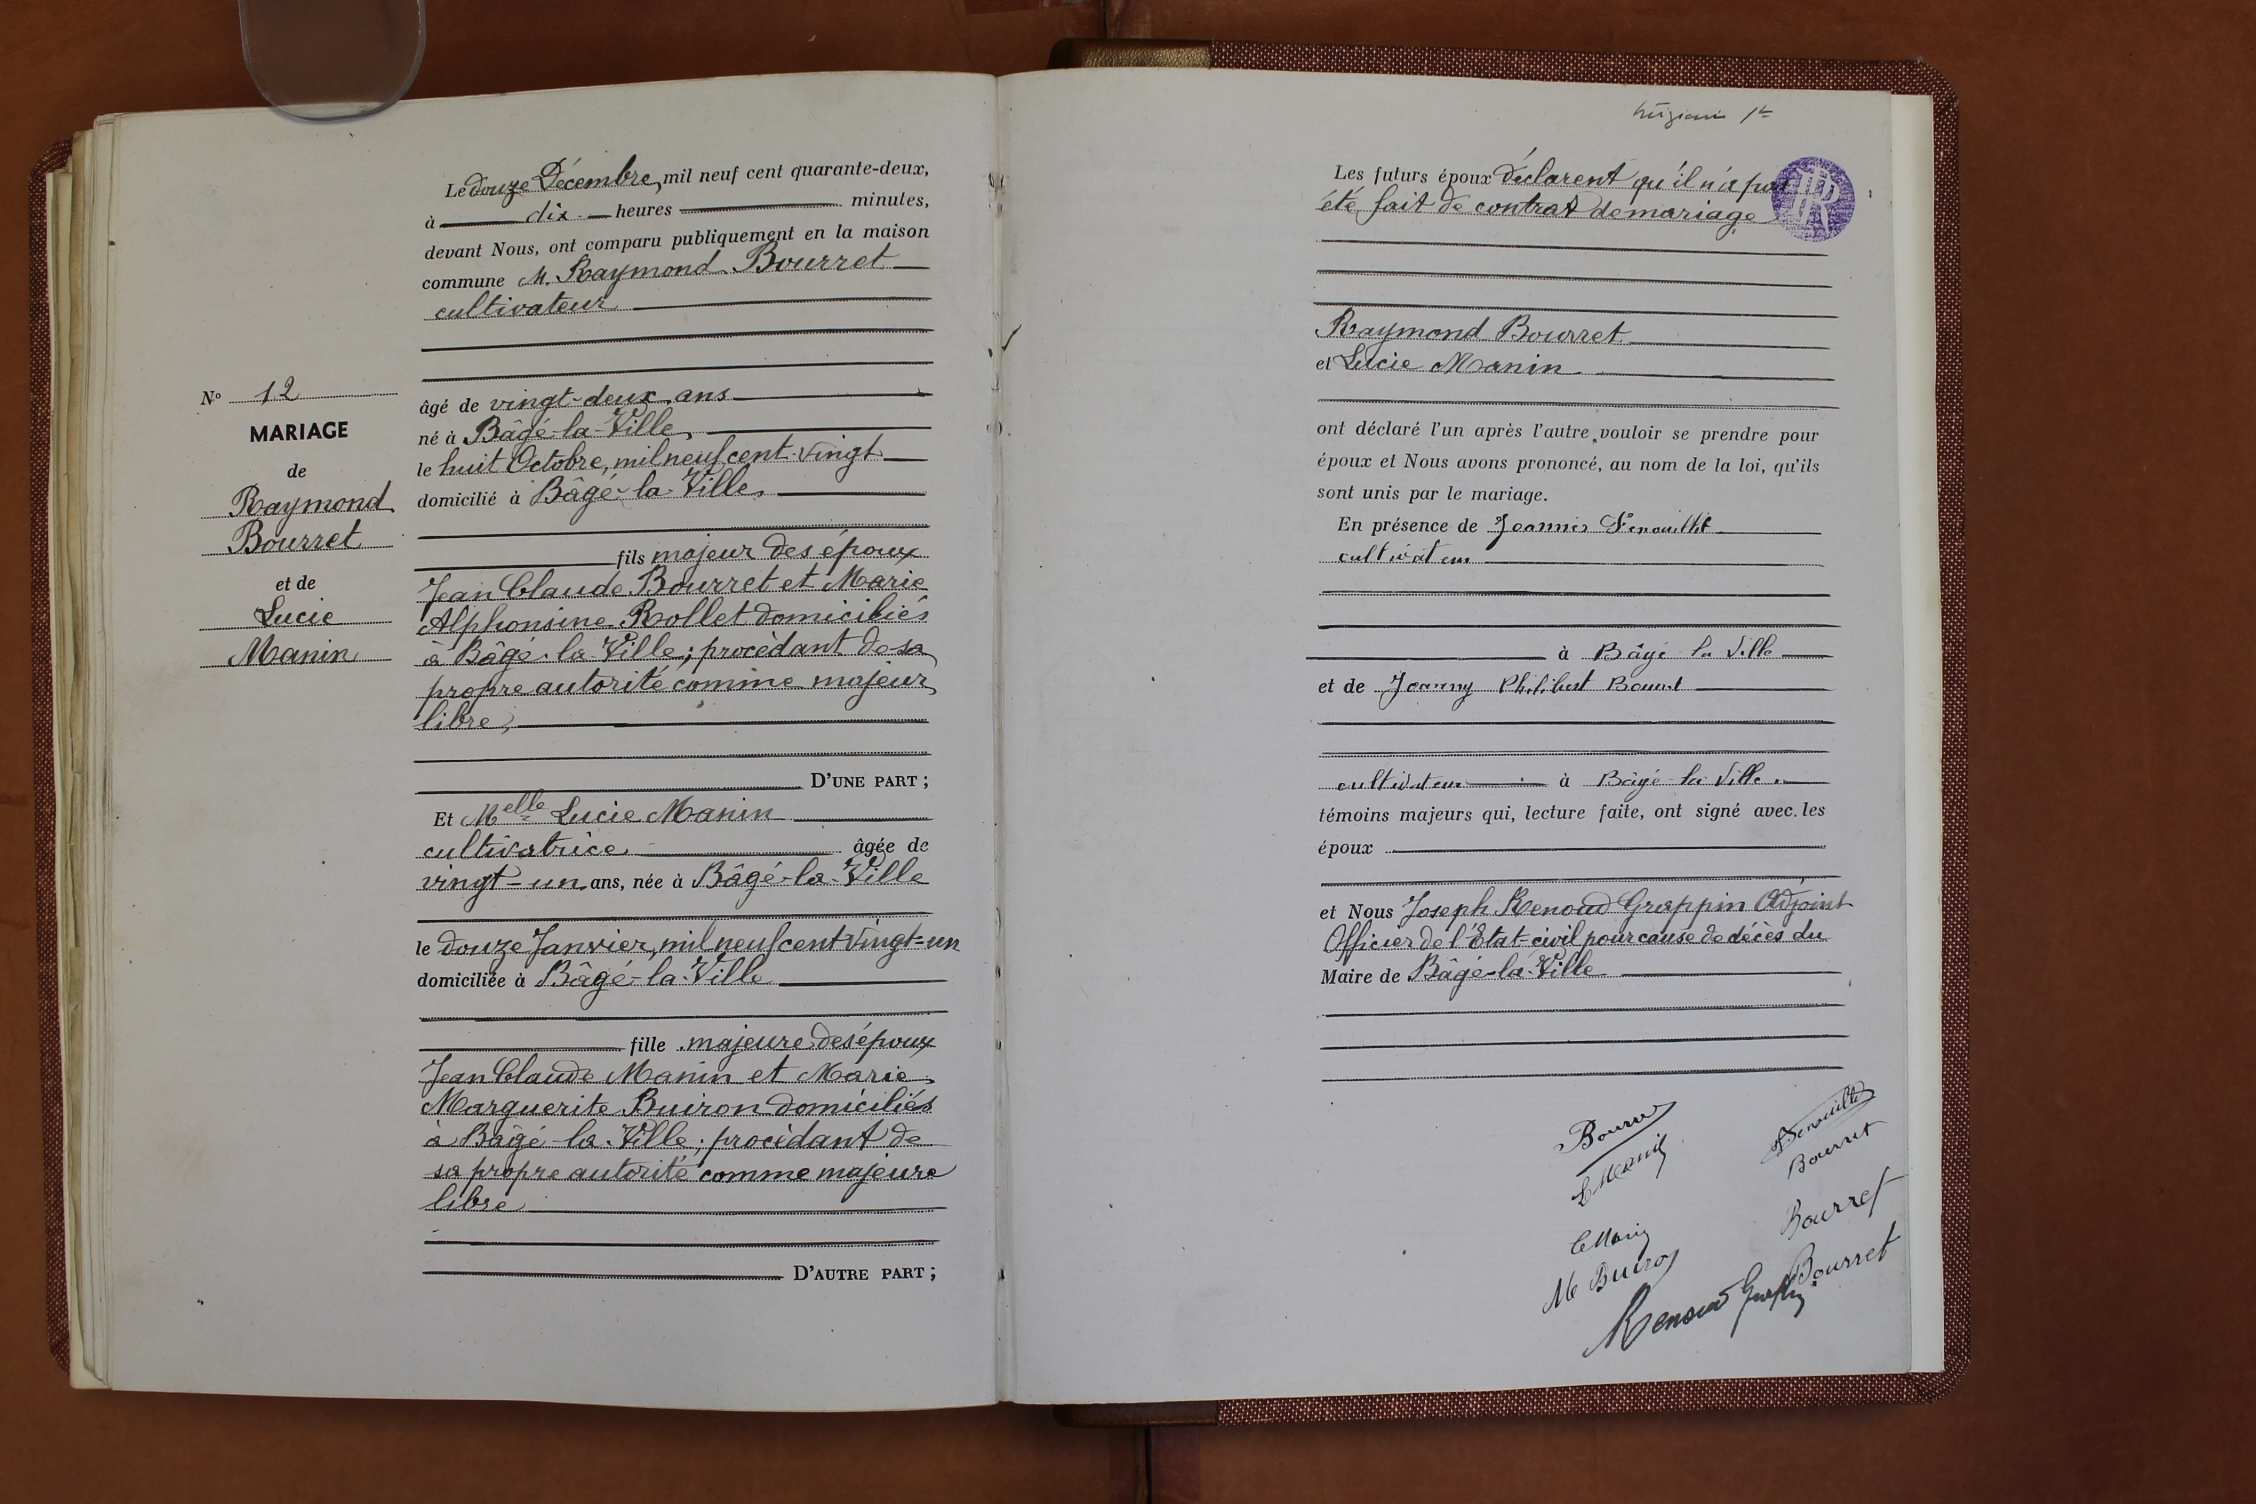 Le douze Décembre, mil neuf cent quarante-deux,
à dix heures minutes,
devant Nous, ont comparu publiquement en la maison
commune M. Raymond Bourret
cultivateur
âgé de vingt-deux ans
né à Bâgé-la-Ville,
le huit Octobre, mil neuf cent vingt
domicilié à Bâgé-la-Ville,
fils majeur des époux
Jean Claude Bourret et Marie
Alphonsine Rollet domiciliés
à Bâgé-la-Ville; procédant de sa
propre autorité comme majeur
libre,
D'UNE PART;
Et Melle Lucie Manin
cultivatrice âgée de
vingt-un ans, née à Bâgé-la-Ville
le douze Janvier, mil neuf cent vingt-un
domiciliée à Bâgé-la-Ville
fille majeure des époux
Jean Claude Manin et Marie
Marguerite Buiron domiciliés
à Bâgé-la-Ville; procédant de
sa propre autorité comme majeure
libre
D'AUTRE PART;
No 12
MARIAGE
de
Raymond
Bourret
et de
Lucie
Manin
1er
Les futurs époux déclarent qu'il n'a pas
été fait de contrat de mariage
RF
Raymond Bourret
et Lucie Manin
ont déclaré l'un après l'autre vouloir se prendre pour
époux et Nous avons prononcé, au nom de la loi, qu'ils
sont unis par le mariage.
En présence de Joannès Fenouillet
cultivateur
à Bâgé la Ville
et de Joanny Philibert Bourret
cultivateur à Bâgé-la-Ville
témoins majeurs qui, lecture faite, ont signé avec les
époux
et Nous Joseph Renoud Grappin Adjoint
Officier de l'Etat-civil pour cause de décès du
Maire de Bâgé-la-Ville
Bourret
L Manin
Fenouillet
Bourret
C Manin
Bourret
M Buiron
Bourret
Renoud Grappin